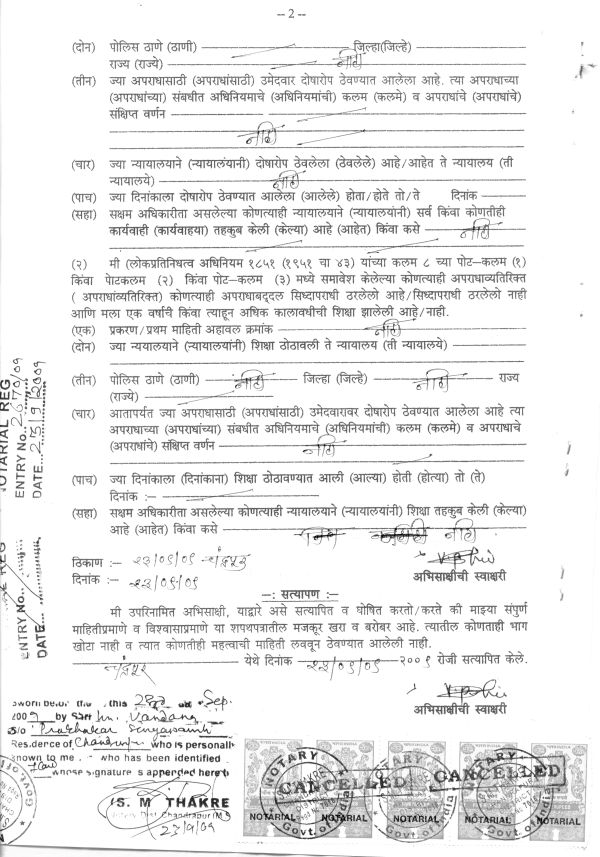 -- 2 --
(दोन) पोलिस ठाणे (ठाणी) जिल्हा(जिल्हे)
राज्य (राज्ये) नाही
(तीन) ज्या अपराधासाठी (अपराधांसाठी) उमेदवार दोषारोप ठेवण्यात आलेला आहे. त्या अपराधाच्या
(अपराधांच्या) संबधीत अधिनियमाचे (अधिनियमांची) कलम (कलमे) व अपराधाचे (अपराधांचे)
संक्षिप्त वर्णन
नाही
(चार) ज्या न्यायालयाने (न्यायालयांनी) दोषारोप ठेवलेला (ठेवलेले) आहे/आहेत ते न्यायालय (ती
न्यायालये) नाही
(पाच) ज्या दिनांकाला दोषारोप ठेवण्यात आलेला (आलेले) होता/होते तो/ते दिनांक
(सहा) सक्षम अधिकारीता असलेल्या कोणत्याही न्यायालयाने (न्यायालयांनी) सर्व किंवा कोणतीही
कार्यवाही (कार्यवाहया) तहकुब केली (केल्या) आहे (आहेत) किंवा कसे नाही
(२) मी (लोकप्रतिनिधत्व अधिनियम १८५१ (१९५१ चा ४३) यांच्या कलम ८ च्या पोट-कलम (१)
किंवा पोटकलम (२) किंवा पोट-कलम (३) मध्ये समावेश केलेल्या कोणत्याही अपराधाव्यतिरिक्त
( अपराधांव्यतिरिक्त) कोणत्याही अपराधाबद्दल सिध्दापराधी ठरलेलो आहे/सिध्दापराधी ठरलेलो नाही
आणि मला एक वर्षाची किंवा त्याहून अधिक कालावधीची शिक्षा झालेली आहे/नाही.
(एक) प्रकरण/प्रथम माहिती अहावल क्रमांक नाही
(दोन) ज्या नययालयाने (न्यायालयांनी) शिक्षा ठोठावली ते न्यायालय (ती न्यायालये)
(तीन) पोलिस ठाणे (ठाणी) नाही जिल्हा (जिल्हे) नाही राज्य
(राज्ये)
(चार) आतापर्यत ज्या अपराधासाठी (अपराधांसाठी) उमेदवारावर दोषारोप ठेवण्यात आलेला आहे त्या
अपराधाच्या (अपराधांच्या) संबधीत अधिनियमाचे (अधिनियमांची) कलम (कलमे) व अपराधाचे
(अपराधांचे) संक्षिप्त वर्णन नाही
(पाच) ज्या दिनांकाला (दिनांकाना) शिक्षा ठोठावण्यात आली (आल्या) होती (होत्या) तो (ते)
दिनांक :-
(सहा) सक्षम अधिकारीता असलेल्या कोणत्याही न्यायालयाने (न्यायालयांनी) शिक्षा तहकुब केली (केल्या)
आहे (आहेत) किंवा कसे नाही
ठिकाण :- २३/०९/०९ चंद्रपूर
दिनांक :- २३/०९/०९
अभिसाक्षीची स्वाक्षरी
-: सत्यापण :-
मी उपरिनामित अभिसाक्षी, याद्वारे असे सत्यापित व घोषित करतो/करते की माझ्या संपुर्ण
माहितीप्रमाणे व विश्वासाप्रमाणे या शपथपत्रातील मजकूर खरा व बरोबर आहे. त्यातील कोणताही भाग
खोटा नाही व त्यात कोणतीही महत्वाची माहिती लववून ठेवण्यात आलेली नाही.
चंद्रपूर येथे दिनांक २३/०९/०९ २००९ रोजी सत्यापित केले.
अभिसाक्षीची स्वाक्षरी
NOTARIAL REG
ENTRY No. 2670/09
DATE 23/9/2009
ENTRY No.
DATE
Sworn before me this 23rd Sep.
2009 by Vandana
Prabhakar
Residence of Chandrapur who is personally
known to me who has been identified
whose signature is appended here
S. M THAKRE
Chandrapur (M.S.)
23/9/09
NOTARY
CANCELLED
CANCELLED
NOTARIAL NOTARIAL NOTARIAL NOTARIAL NOTARIAL
Govt. of India